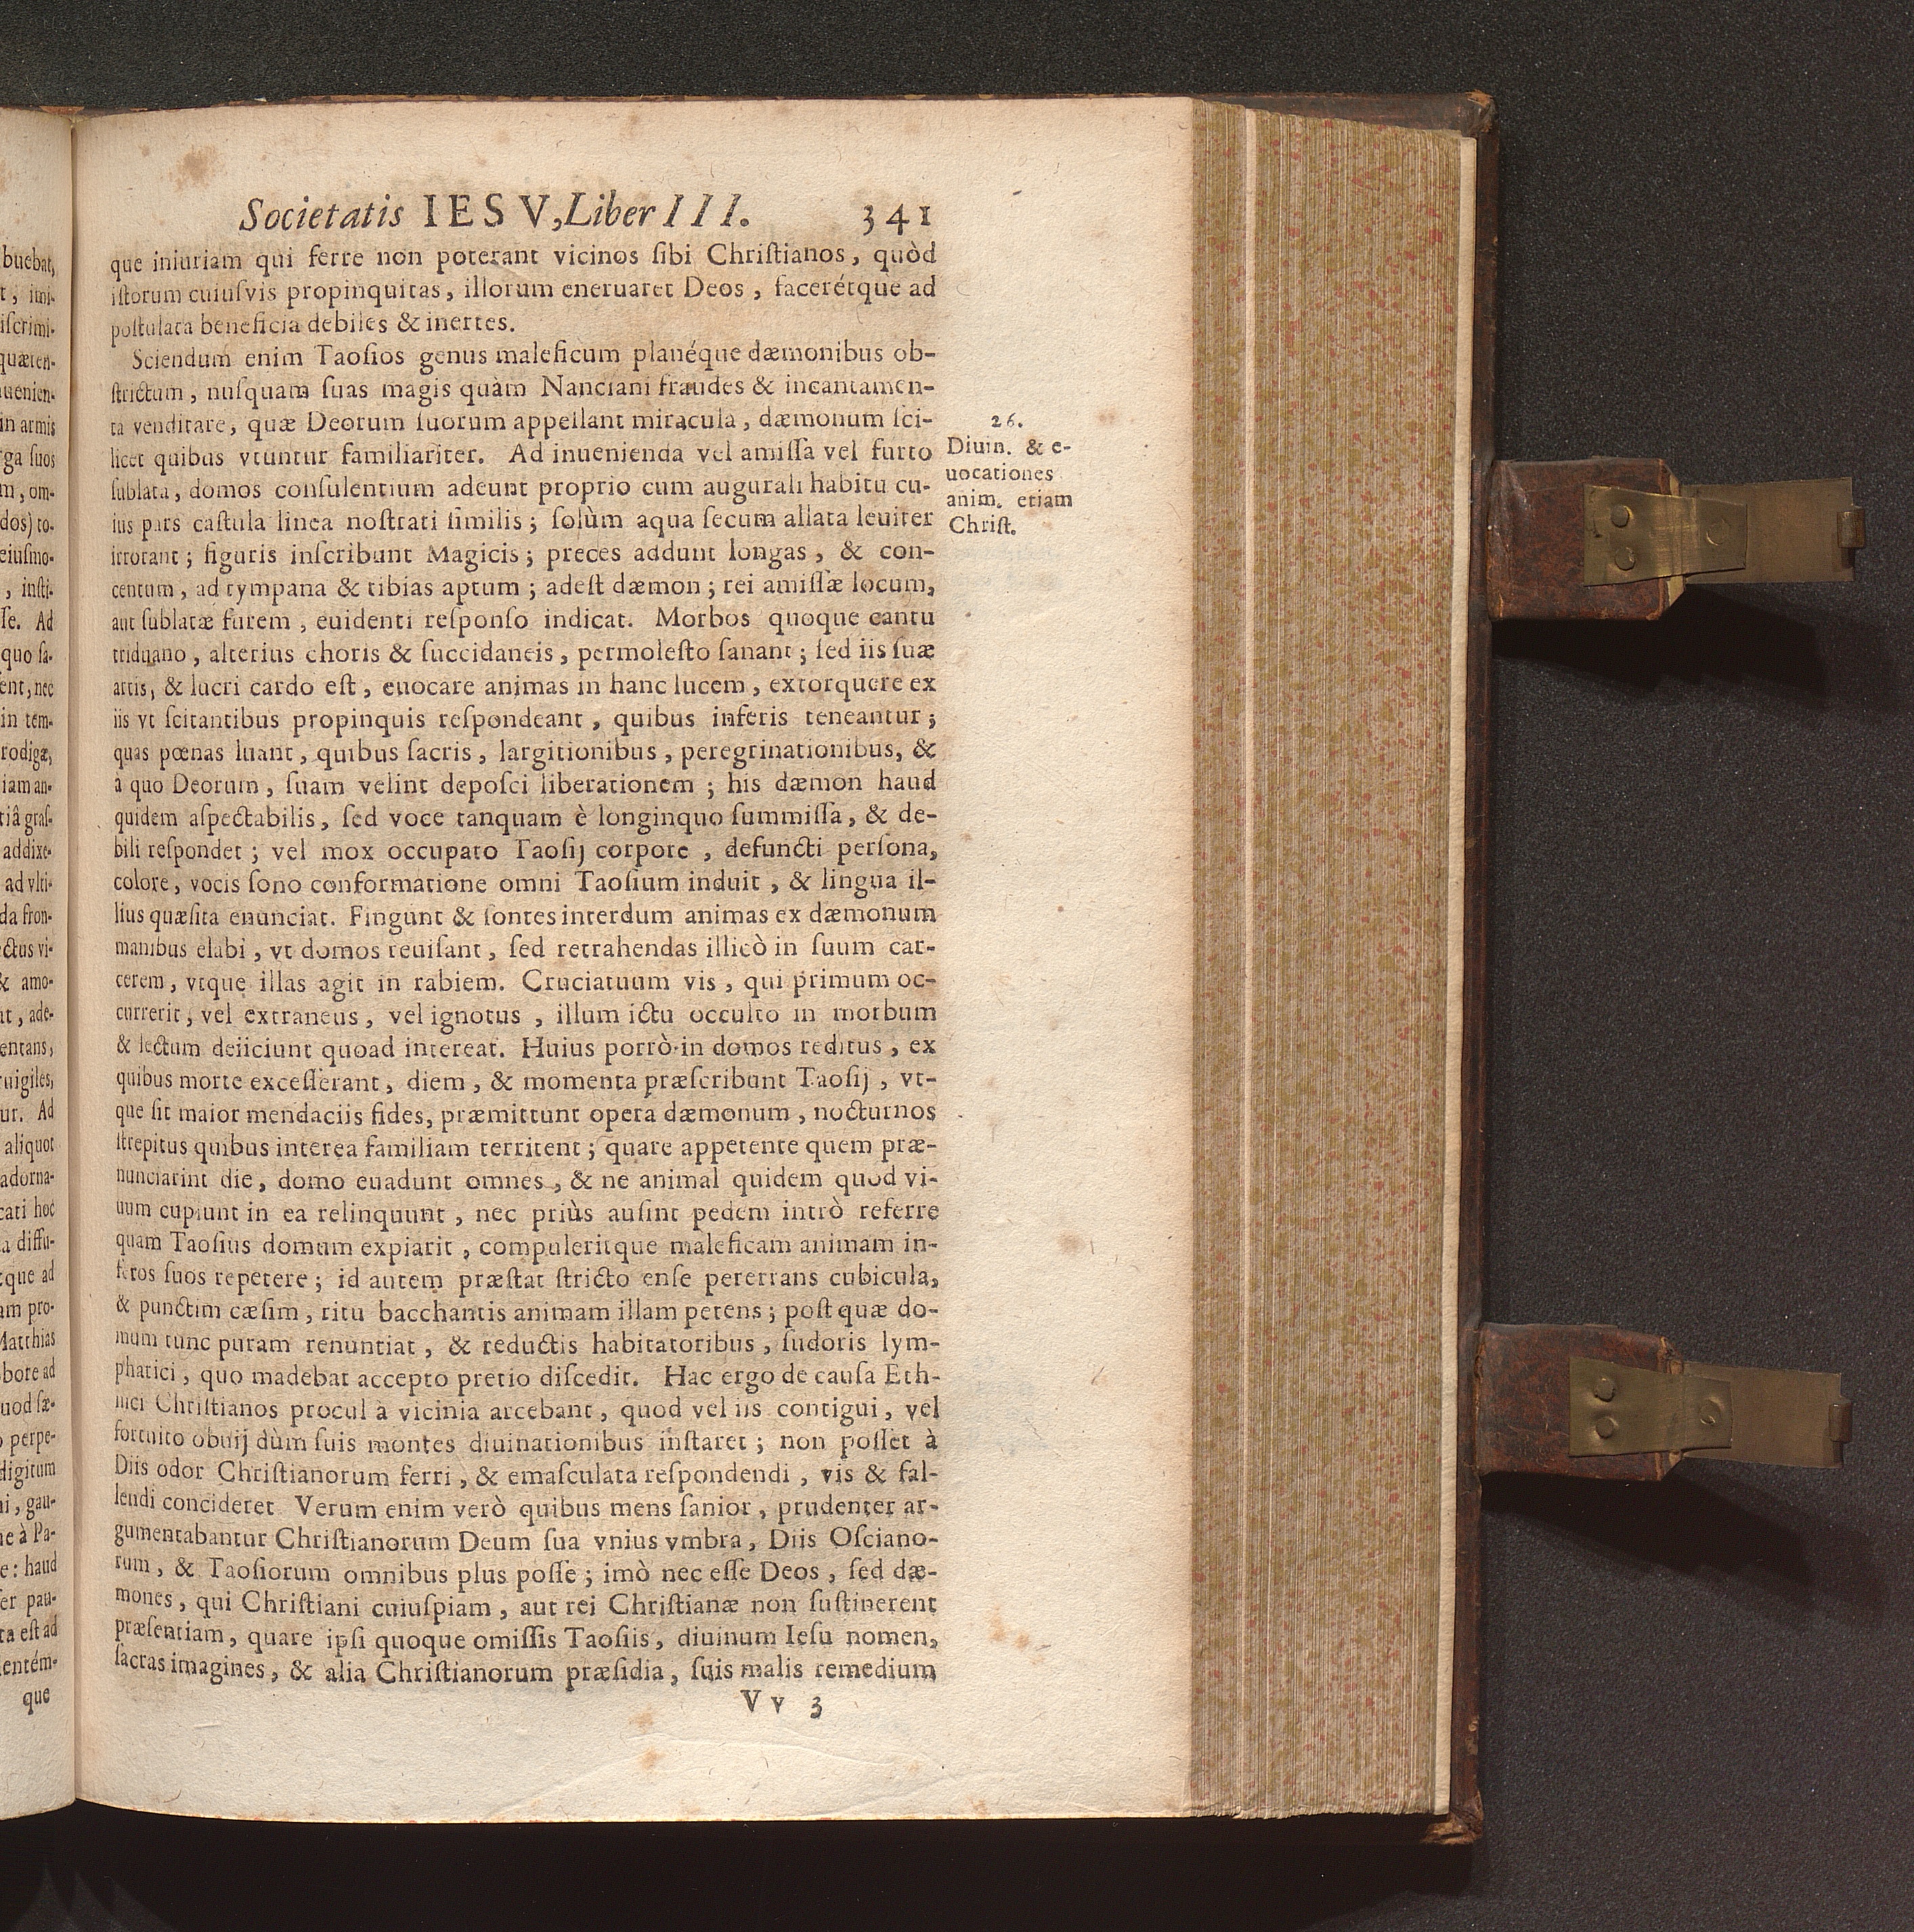 Societatis IESV, Liber III. 341
que iniuriam qui ferre non poterant vicinos ſibi Chriſtianos, quòd
iſtorum cuiuſvis propinquitas, illorum eneruaret Deos, facerétque ad
poſtulata beneficia debiles & inertes.
Sciendum enim Taoſios genus maleficum planéque dæmonibus ob-
ſtrictum, nuſquam ſuas magis quàm Nanciani fraudes & incantamen-
ta venditare, quæ Deorum ſuorum appellant miracula, dæmonum ſci-
licet quibus vtuntur familiariter. Ad inuenienda vel amiſſa vel furto
ſublata, domos conſulentium adeunt proprio cum augurali habitu cu-
ius pars caſtula linea noſtrati ſimilis; ſolùm aqua ſecum allata leuiter
irrorant; figuris inſcribunt Magicis; preces addunt longas, & con-
centum, ad tympana & tibias aptum; adeſt dæmon; rei amiſſæ locum,
aut ſublatæ furem, euidenti reſponſo indicat. Morbos quoque cantu
triduano, alterius choris & ſuccidaneis, permoleſto ſanant; ſed iis ſuæ
artis, & lucri cardo eſt, euocare animas in hanc lucem, extorquere ex
iis vt ſcitantibus propinquis reſpondeant, quibus inferis teneantur;
quas pœnas luant, quibus ſacris, largitionibus, peregrinationibus, &
à quo Deorum, ſuam velint depoſci liberationem; his dæmon haud
quidem aſpectabilis, ſed voce tanquam è longinquo ſummiſſa, & de-
bili reſpondet; vel mox occupato Taoſij corpore, defuncti perſona,
colore, vocis ſono conformatione omni Taoſium induit, & lingua il-
lius quæſita enunciat. Fingunt & ſontes interdum animas ex dæmonum
manibus elabi, vt domos reuiſant, ſed retrahendas illicò in ſuum car-
cerem, vtque illas agit in rabiem. Cruciatuum vis, qui primum oc-
currerit, vel extraneus, vel ignotus, illum ictu occulto in morbum
& lectum deiiciunt quoad intereat. Huius porrò in domos reditus, ex
quibus morte exceſſerant, diem, & momenta præſcribunt Taoſij, vt-
que ſit maior mendaciis fides, præmittunt opera dæmonum, nocturnos
ſtrepitus quibus interea familiam territent; quare appetente quem præ-
nunciarint die, domo euadunt omnes, & ne animal quidem quod vi-
uum cupiunt in ea relinquunt, nec priùs auſint pedem intrò referre
quam Taoſius domum expiarit, compuleritque maleficam animam in-
feros ſuos repetere; id autem præſtat ſtricto enſe pererrans cubicula,
& punctim cæſim, ritu bacchantis animam illam petens; poſt quæ do-
mum tunc puram renuntiat, & reductis habitatoribus, ſudoris lym-
phatici, quo madebat accepto pretio diſcedit. Hac ergo de cauſa Eth-
nici Chriſtianos procul à vicinia arcebant, quod vel iis contigui, vel
fortuito obuij dùm ſuis montes diuinationibus inſtaret; non poſſet à
Diis odor Chriſtianorum ferri, & emaſculata reſpondendi, vis & fal-
lendi concideret Verum enim verò quibus mens ſanior, prudenter ar-
gumentabantur Chriſtianorum Deum ſua vnius vmbra, Diis Oſciano-
rum, & Taoſiorum omnibus plus poſſe; imò nec eſſe Deos, ſed dæ-
mones, qui Chriſtiani cuiuſpiam, aut rei Chriſtianæ non ſuſtinerent
præſentiam, quare ipſi quoque omiſſis Taoſiis, diuinum Ieſu nomen,
ſacras imagines, & alia Chriſtianorum præſidia, ſuis malis remedium
Vv 3
26.
Diuin. & e-
uocationes
anim. etiam
Chriſt.
buebat,
t, imi-
iſcrimi-
quæten-
uenien-
in armis
rga ſuos
m, om-
dos) to-
eiuſmo-
, inſti-
ſe. Ad
quo ſa-
ent, nec
in tem-
rodigæ,
iam an-
tiâ graſ-
addixe-
ad vlti-
da fron-
ectus vi-
& amo-
nt, ade-
entans,
ruigiles,
ur. Ad
aliquot
adorna-
cati hoc
a diffu-
tque ad
am pro-
Matthias
bore ad
uod ſæ-
o perpe-
digitum
ni, gau-
ne à Pa-
e: haud
er pau-
ta eſt ad
entém-
que